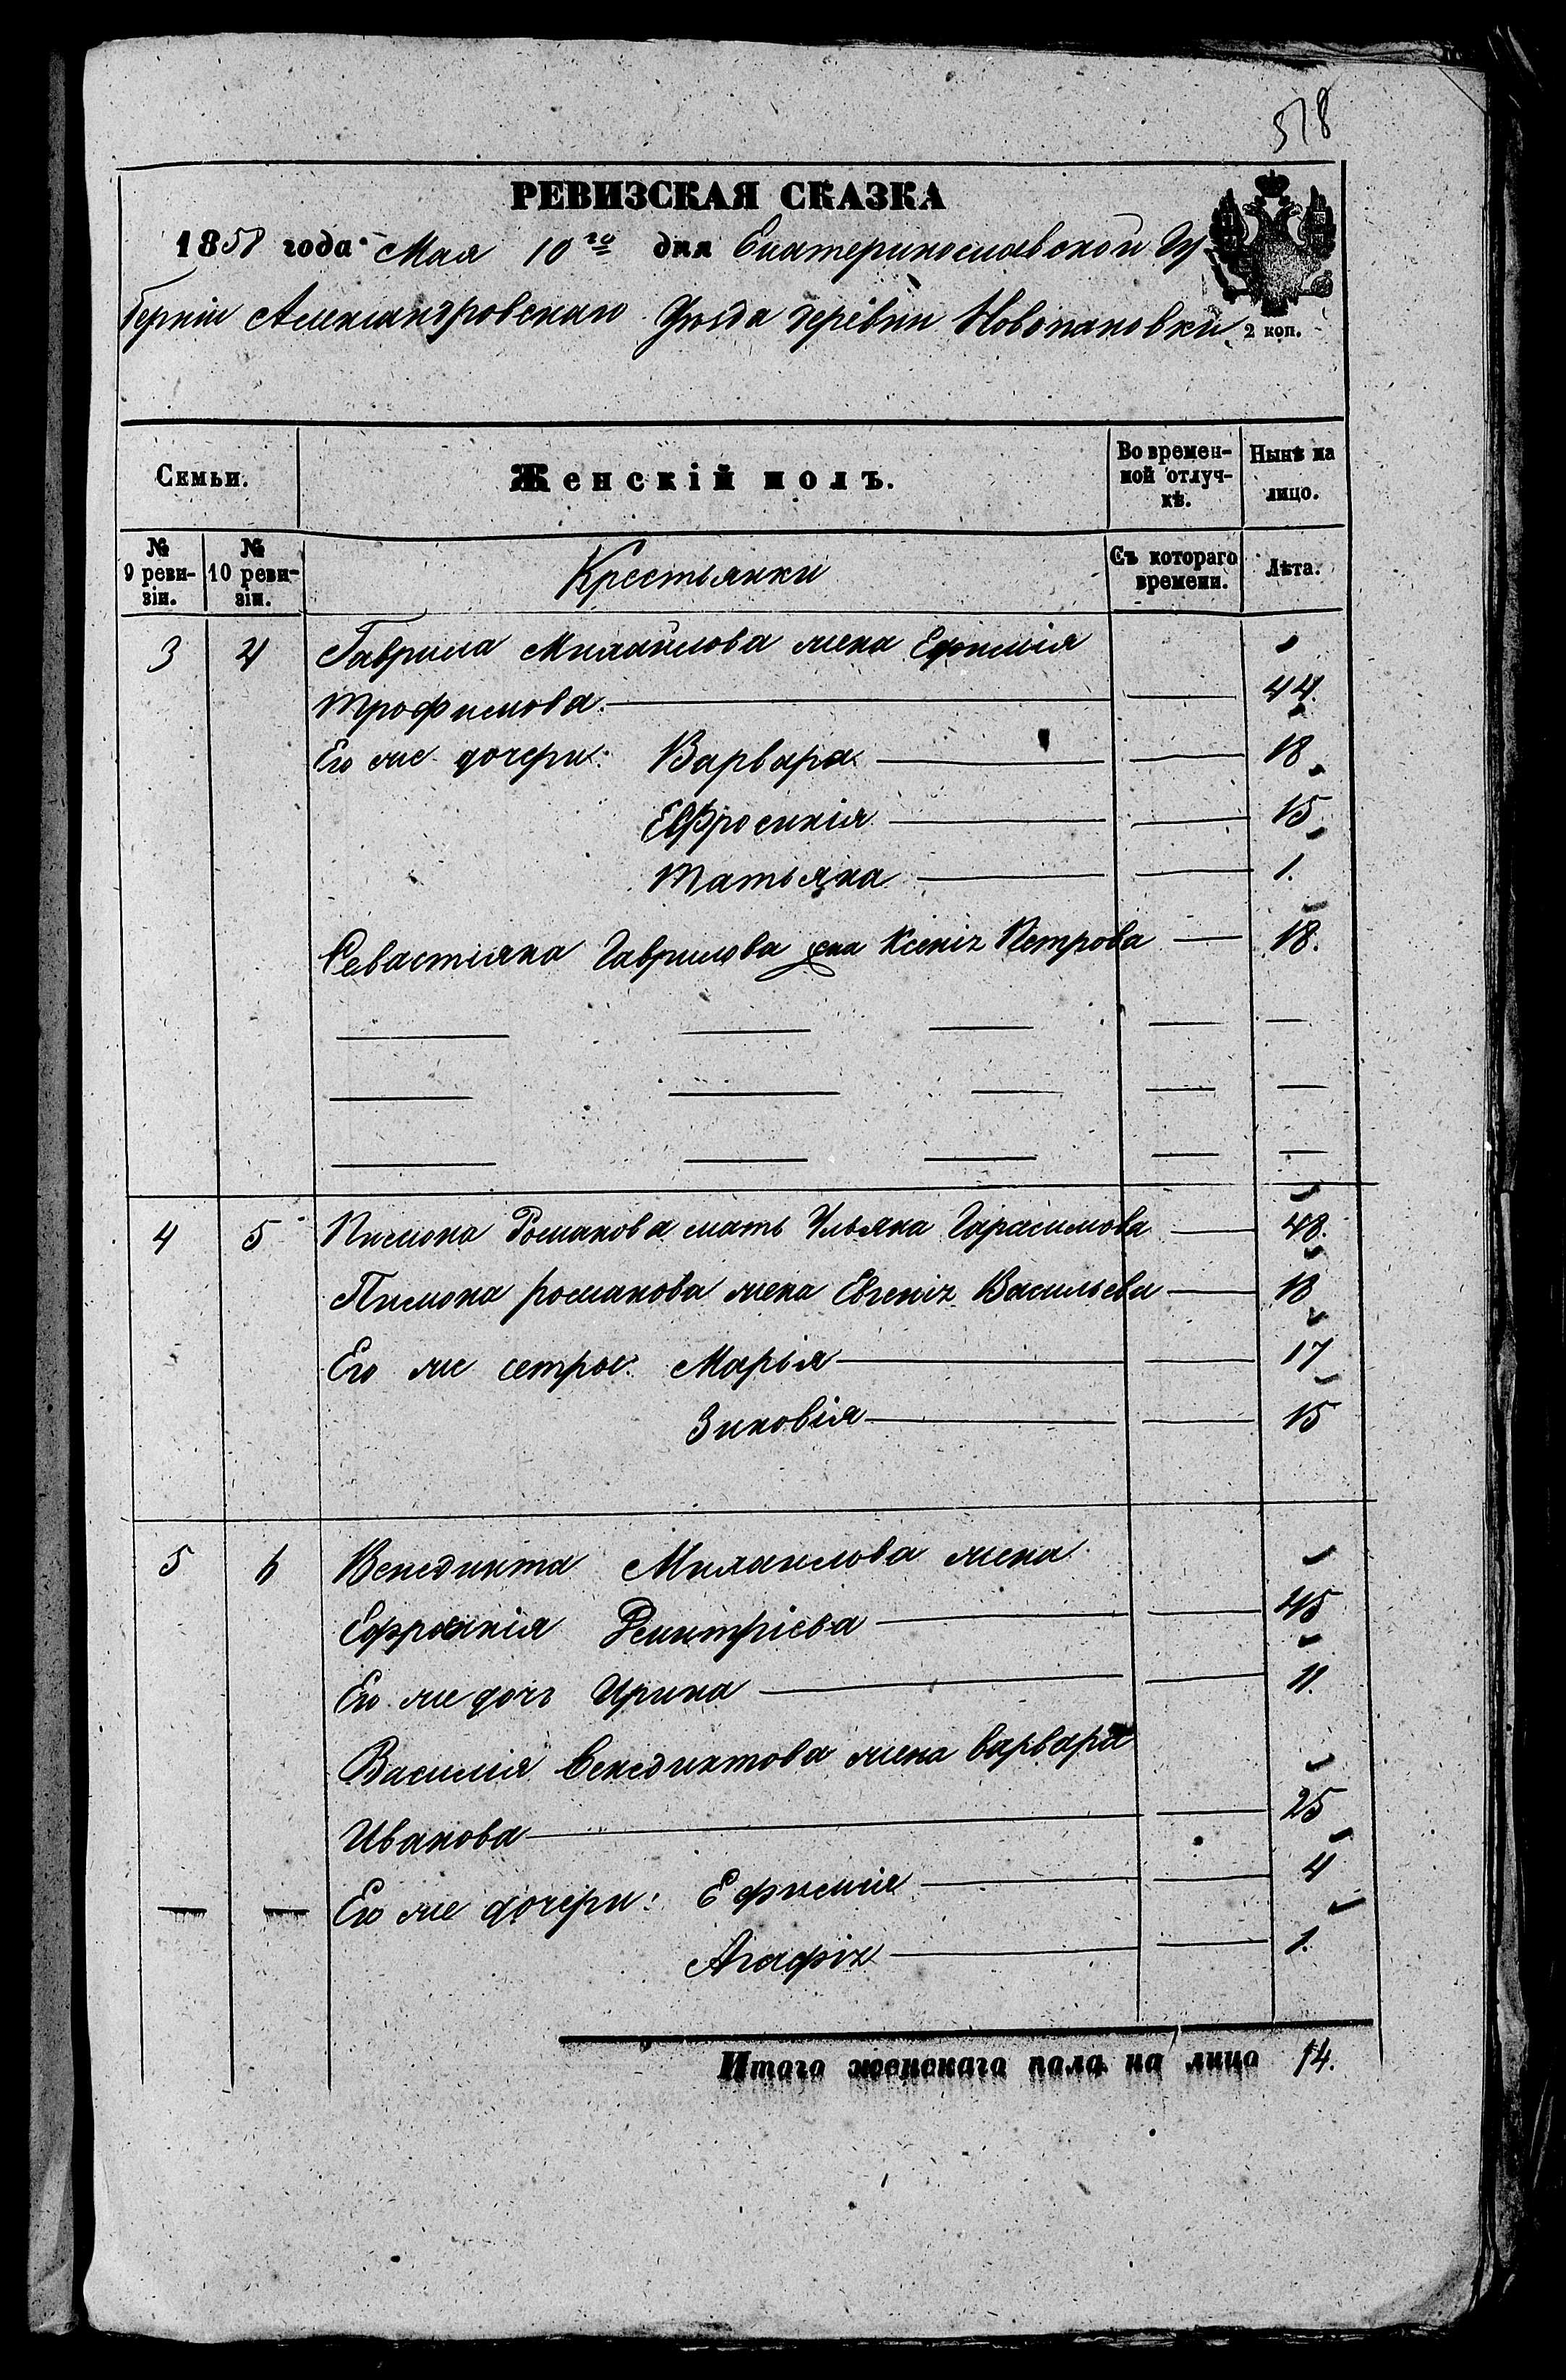 518
РЕВИЗСКАЯ СКАЗКА
1858 года Мая 10го дня Екатеринославской Гу-
берніи Александровскаго Уѣзда деревни Новопановки
2 коп.
Семьи. Женскій полъ. Во времен-ной отлуч-кѣ. Нынѣ на лицо.
№ 9 реви-зіи. № 10 реви-зіи. Крестьянки Съ котораго времени. Лѣта.
3 4 Гаврила Михайлова жена Ефимія
Трофимова. 44.
Его же дочери: Варвара 18
Евфросинія 15
Татьяна 1.
Севастіяна Гаврилова жена Ксенія Петрова 18.
4 5 Пимона Романова мать Ульяна Гарасимова 48.
Пимона Романова жена Евгенія Васильева 18
Его же сетры: Марья 17
Зиновія 15
5 6 Венедикта Михаилова жена
Ефросинія Дмитріева 45
Его же дочь Ирина 11.
Василія Венедиктова жена Варвара
Иванова 25
Его же дочери: Ефимія 4
Агафія 1.
Итого женскаго пола на лицо 14.